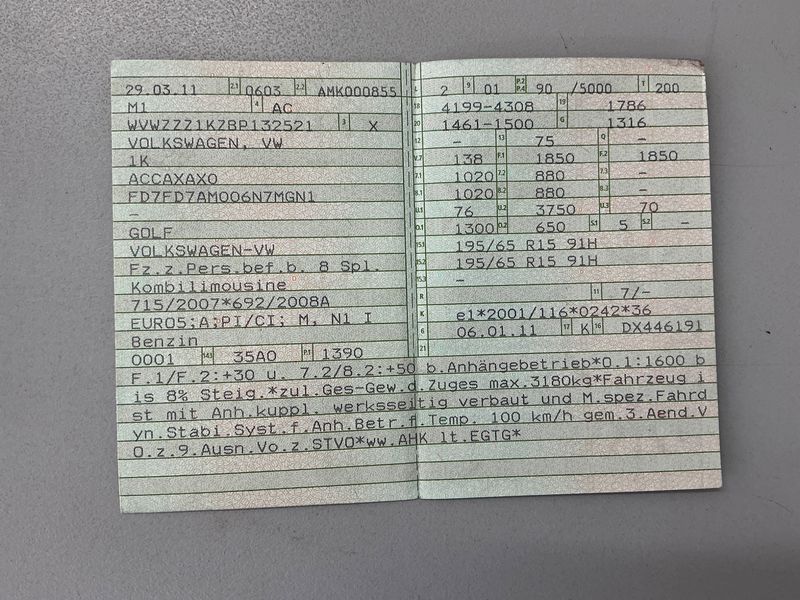 29.03.11 2.1 0603 2.2 AMK000855
M1 4 AC
WVWZZZ1KZBP132521 3 X
VOLKSWAGEN, VW
1K
ACCAXAX0
FD7FD7AM006N7MGN1
–
GOLF
VOLKSWAGEN-VW
Fz.z.Pers.bef.b. 8 Spl.
Kombilimousine
715/2007*692/2008A
EURO5;A;PI/CI; M, N1 I
Benzin
0001 14.1 35A0 P.1 1390
L 2 9 01 P.2 P.4 90 /5000 T 200
18 4199-4308 19 1786
20 1461-1500 G 1316
12 – 13 75 Q –
V.7 138 F.1 1850 F.2 1850
7.1 1020 7.2 880 7.3 –
8.1 1020 8.2 880 8.3 –
U.1 76 U.2 3750 U.3 70
O.1 1300 O.2 650 S.1 5 S.2 –
15.1 195/65 R15 91H
15.2 195/65 R15 91H
15.3 –
R 11 7/–
K e1*2001/116*0242*36
6 06.01.11 17 K 16 DX446191
21
F.1/F.2:+30 u. 7.2/8.2:+50 b.Anhängebetrieb*O.1:1600 b
is 8% Steig.*zul.Ges-Gew.d.Zuges max.3180kg*Fahrzeug i
st mit Anh.kuppl. werksseitig verbaut und M.spez.Fahrd
yn.Stabi.Syst.f.Anh.Betr.f.Temp. 100 km/h gem.3.Aend.V
O.z.9.Ausn.Vo.z.STVO*ww.AHK lt.EGTG*